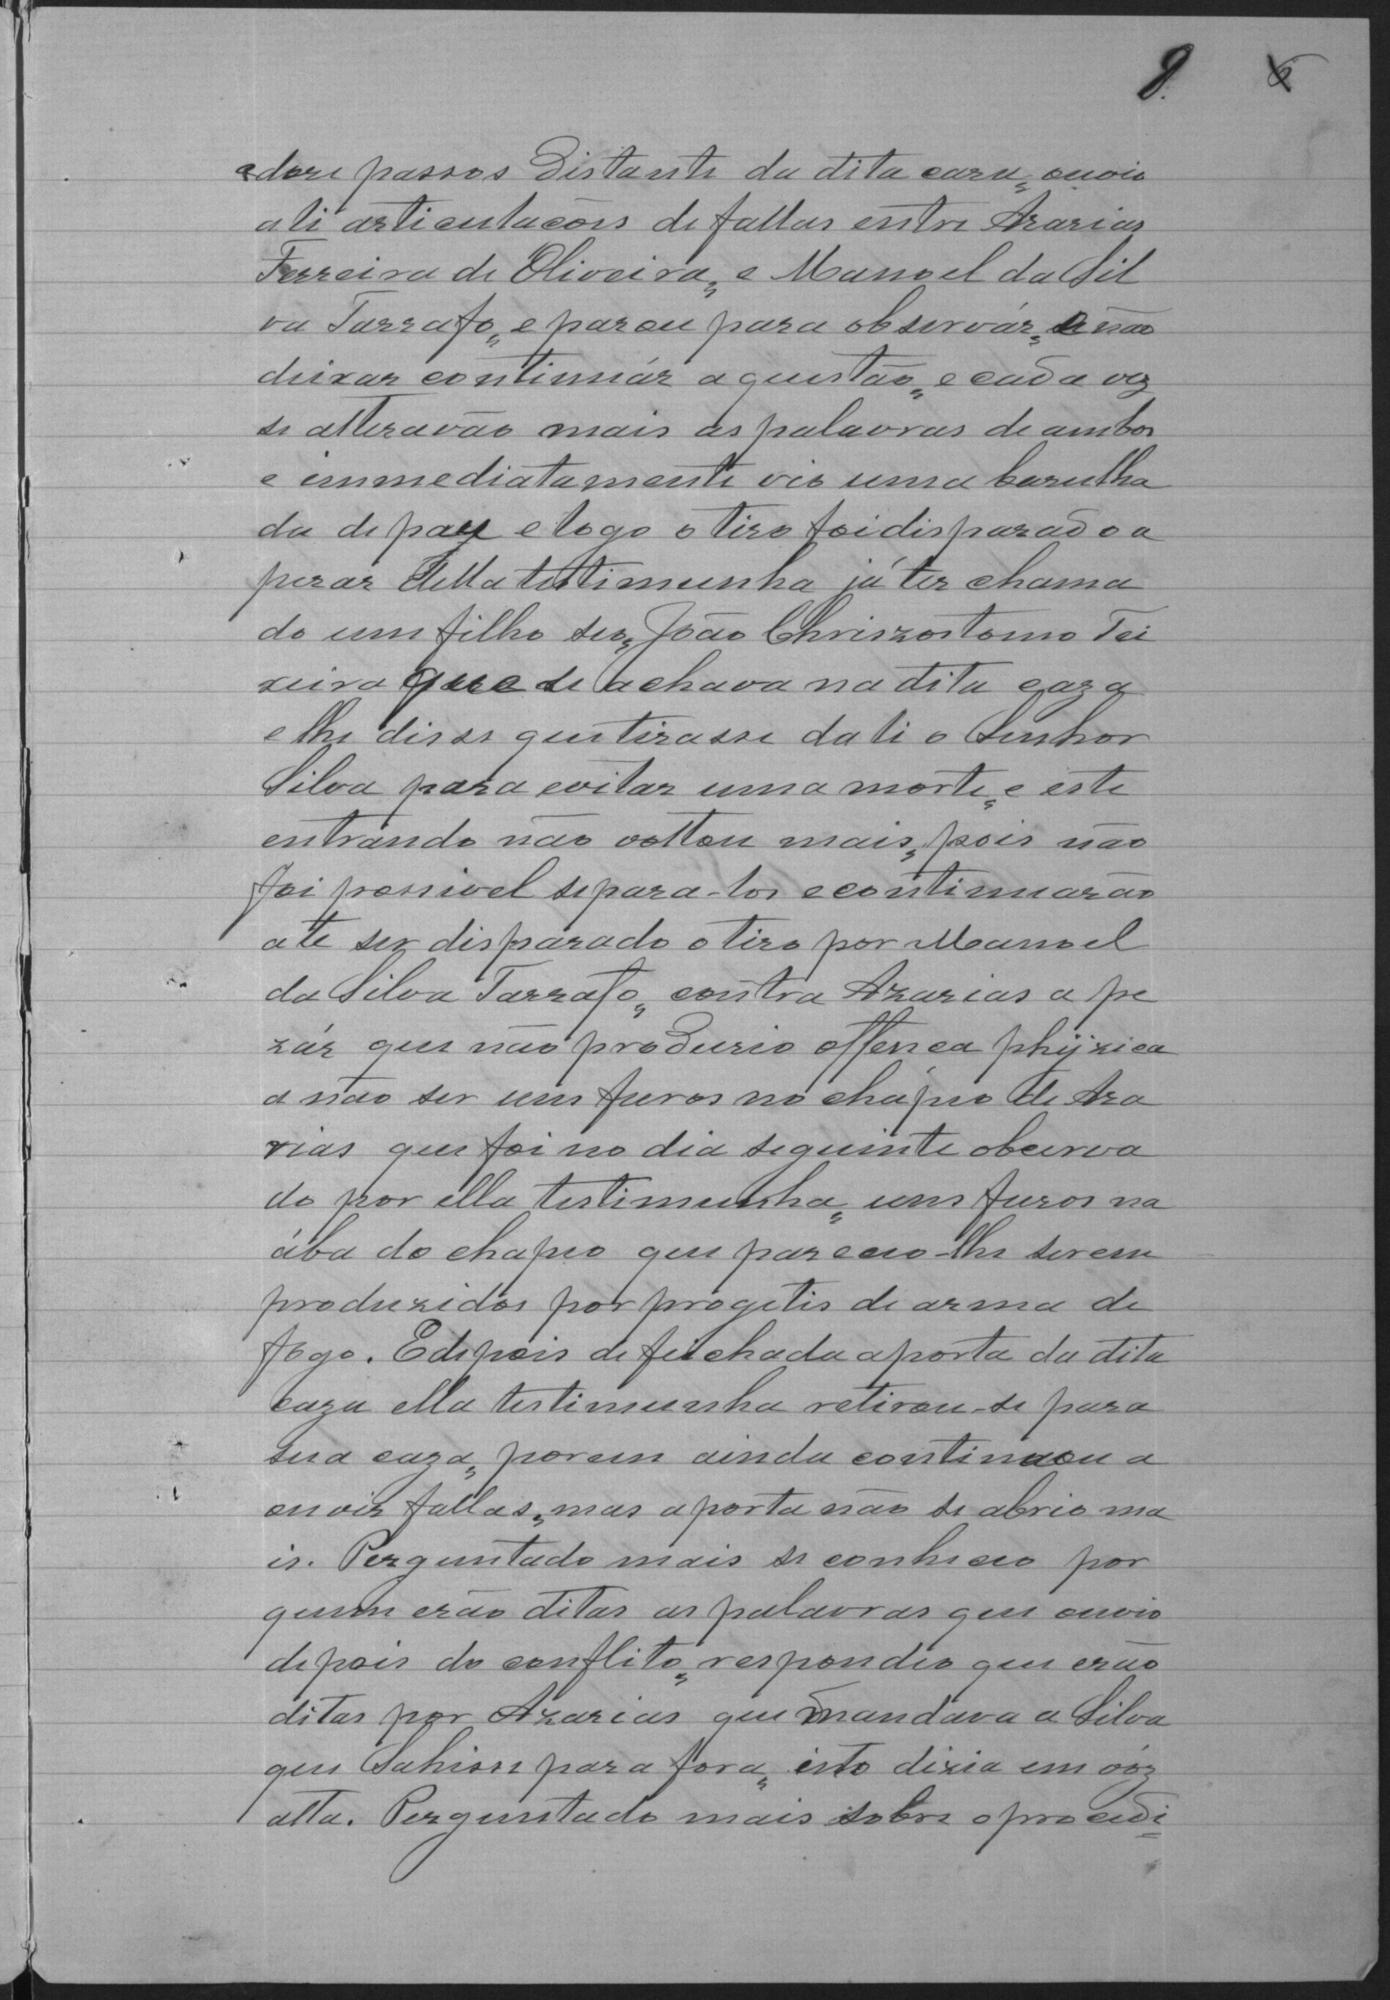 8. 6
edose passos Distante da dita caza„ ouvio
ali articulacões de fallas entre Azarias
Ferreira de Oliveira„ e Manoel da Sil
va Tarrafo„ e parou para observár„ e não
deixar continuár a questão„ e cada vez
se alteravão mais as palavras de ambos
e immediatamente vio uma barulha
da de pau e logo o tiro foi disparado a
pezár della testimunha já ter chama
do um filho seo„ João Chriszostomo Tei
xeira que se achava na dita caza
e lhe disse que tirasse dali o Senhor
Silva para evitar uma morte„ e este
entrando não voltou mais„ pois não
foi possivel separa-los e continuarão
até ser disparado o tiro por Manoel
da Silva Tarrafo„ contra Azarias a pe
zár que não produzio offenca phyzica
a não ser uns furos no chapéo de Aza
rias que foi no dia seguinte observa
do por ella testimunha„ uns furos na
ába do chapeo que pareceo-lhe serem
produzidos por progetis de arma de
fogo. E depois de feichada a porta da dita
caza ella testimunha retirou-se para
sua caza„ porem ainda continuou a
ouvir fallas„ mas a porta não se abrio ma
is. Perguntado mais se conheceo por
quem erão ditas as palavras que ouvio
depois do conflito„ respondeo que erão
ditas por Azarias que mandava a Silva
que Sahisse para fora„ isto dizia em vóz
alta. Perguntado mais sobre o procedi=